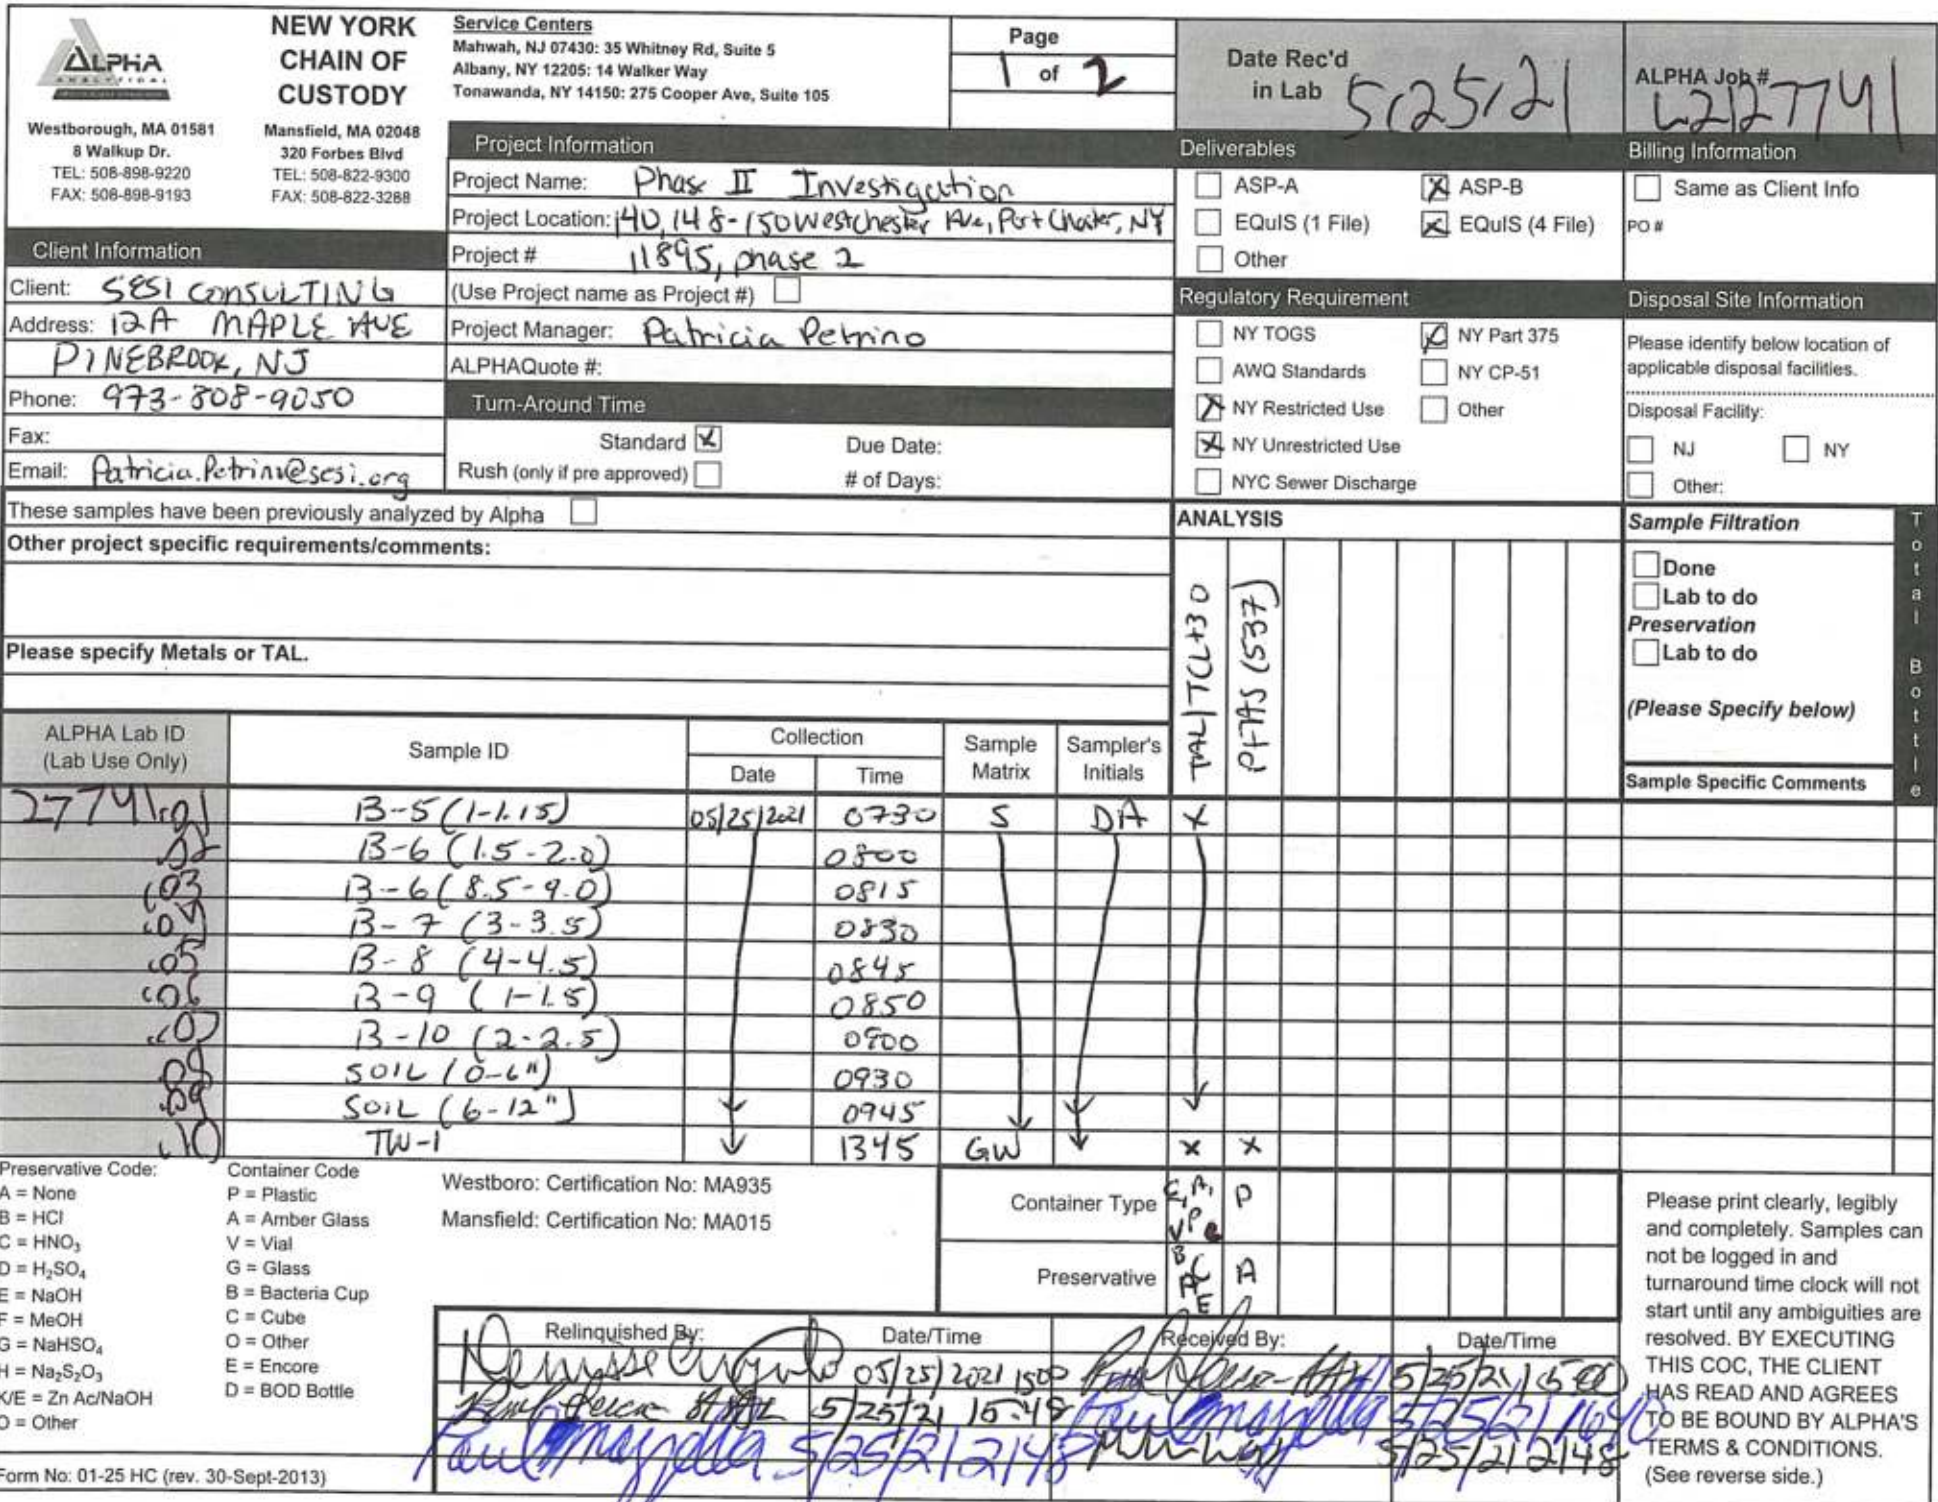 ALPHA
ANALYTICAL
Westborough, MA 01581
8 Walkup Dr.
TEL: 508-898-9220
FAX: 508-898-9193
NEW YORK
CHAIN OF
CUSTODY
Mansfield, MA 02048
320 Forbes Blvd
TEL: 508-822-9300
FAX: 508-822-3288
Service Centers
Mahwah, NJ 07430: 35 Whitney Rd, Suite 5
Albany, NY 12205: 14 Walker Way
Tonawanda, NY 14150: 275 Cooper Ave, Suite 105
Page
1 of 2
Date Rec'd
in Lab 5/25/21
ALPHA Job #
L2127741
Client Information
Client: SESI CONSULTING
Address: 12A MAPLE AVE
PINEBROOK, NJ
Phone: 973-808-9050
Fax:
Email: Patricia.Petrino@sesi.org
Project Information
Project Name: Phase II Investigation
Project Location: 140, 148-150 Westchester Ave, Port Chester, NY
Project # 11895, phase 2
(Use Project name as Project #)
Project Manager: Patricia Petrino
ALPHAQuote #:
Turn-Around Time
Standard X Due Date:
Rush (only if pre approved) # of Days:
Deliverables
ASP-A X ASP-B
EQuIS (1 File) X EQuIS (4 File)
Other
Regulatory Requirement
NY TOGS X NY Part 375
AWQ Standards NY CP-51
X NY Restricted Use Other
X NY Unrestricted Use
NYC Sewer Discharge
Billing Information
Same as Client Info
PO #
Disposal Site Information
Please identify below location of
applicable disposal facilities.
Disposal Facility:
NJ NY
Other:
These samples have been previously analyzed by Alpha
Other project specific requirements/comments:
Please specify Metals or TAL.
ANALYSIS
TAL/TCL+30
PFAS (537)
Sample Filtration
Done
Lab to do
Preservation
Lab to do
(Please Specify below)
Total Bottle
ALPHA Lab ID
(Lab Use Only)
Sample ID
Collection
Date Time
Sample
Matrix
Sampler's
Initials
Sample Specific Comments
27741-01 B-5 (1-1.15) 05/25/2021 0730 S DA X
.02 B-6 (1.5-2.0) 0800
.03 B-6 (8.5-9.0) 0815
.04 B-7 (3-3.5) 0830
.05 B-8 (4-4.5) 0845
.06 B-9 (1-1.5) 0850
.07 B-10 (2-2.5) 0900
.08 SOIL (0-6") 0930
.09 SOIL (6-12") 0945
.10 TW-1 1345 GW X X
Preservative Code:
A = None
B = HCl
C = HNO3
D = H2SO4
E = NaOH
F = MeOH
G = NaHSO4
H = Na2S2O3
K/E = Zn Ac/NaOH
O = Other
Container Code
P = Plastic
A = Amber Glass
V = Vial
G = Glass
B = Bacteria Cup
C = Cube
O = Other
E = Encore
D = BOD Bottle
Westboro: Certification No: MA935
Mansfield: Certification No: MA015
Container Type E, A, V P G P
Preservative B C A E A
Relinquished By: Date/Time Received By: Date/Time
05/25/2021 1500 5/25/21 1500
5/25/21 15:48 5/25/21 1640
5/25/21 2148 5/25/21 2148
Please print clearly, legibly
and completely. Samples can
not be logged in and
turnaround time clock will not
start until any ambiguities are
resolved. BY EXECUTING
THIS COC, THE CLIENT
HAS READ AND AGREES
TO BE BOUND BY ALPHA'S
TERMS & CONDITIONS.
(See reverse side.)
Form No: 01-25 HC (rev. 30-Sept-2013)